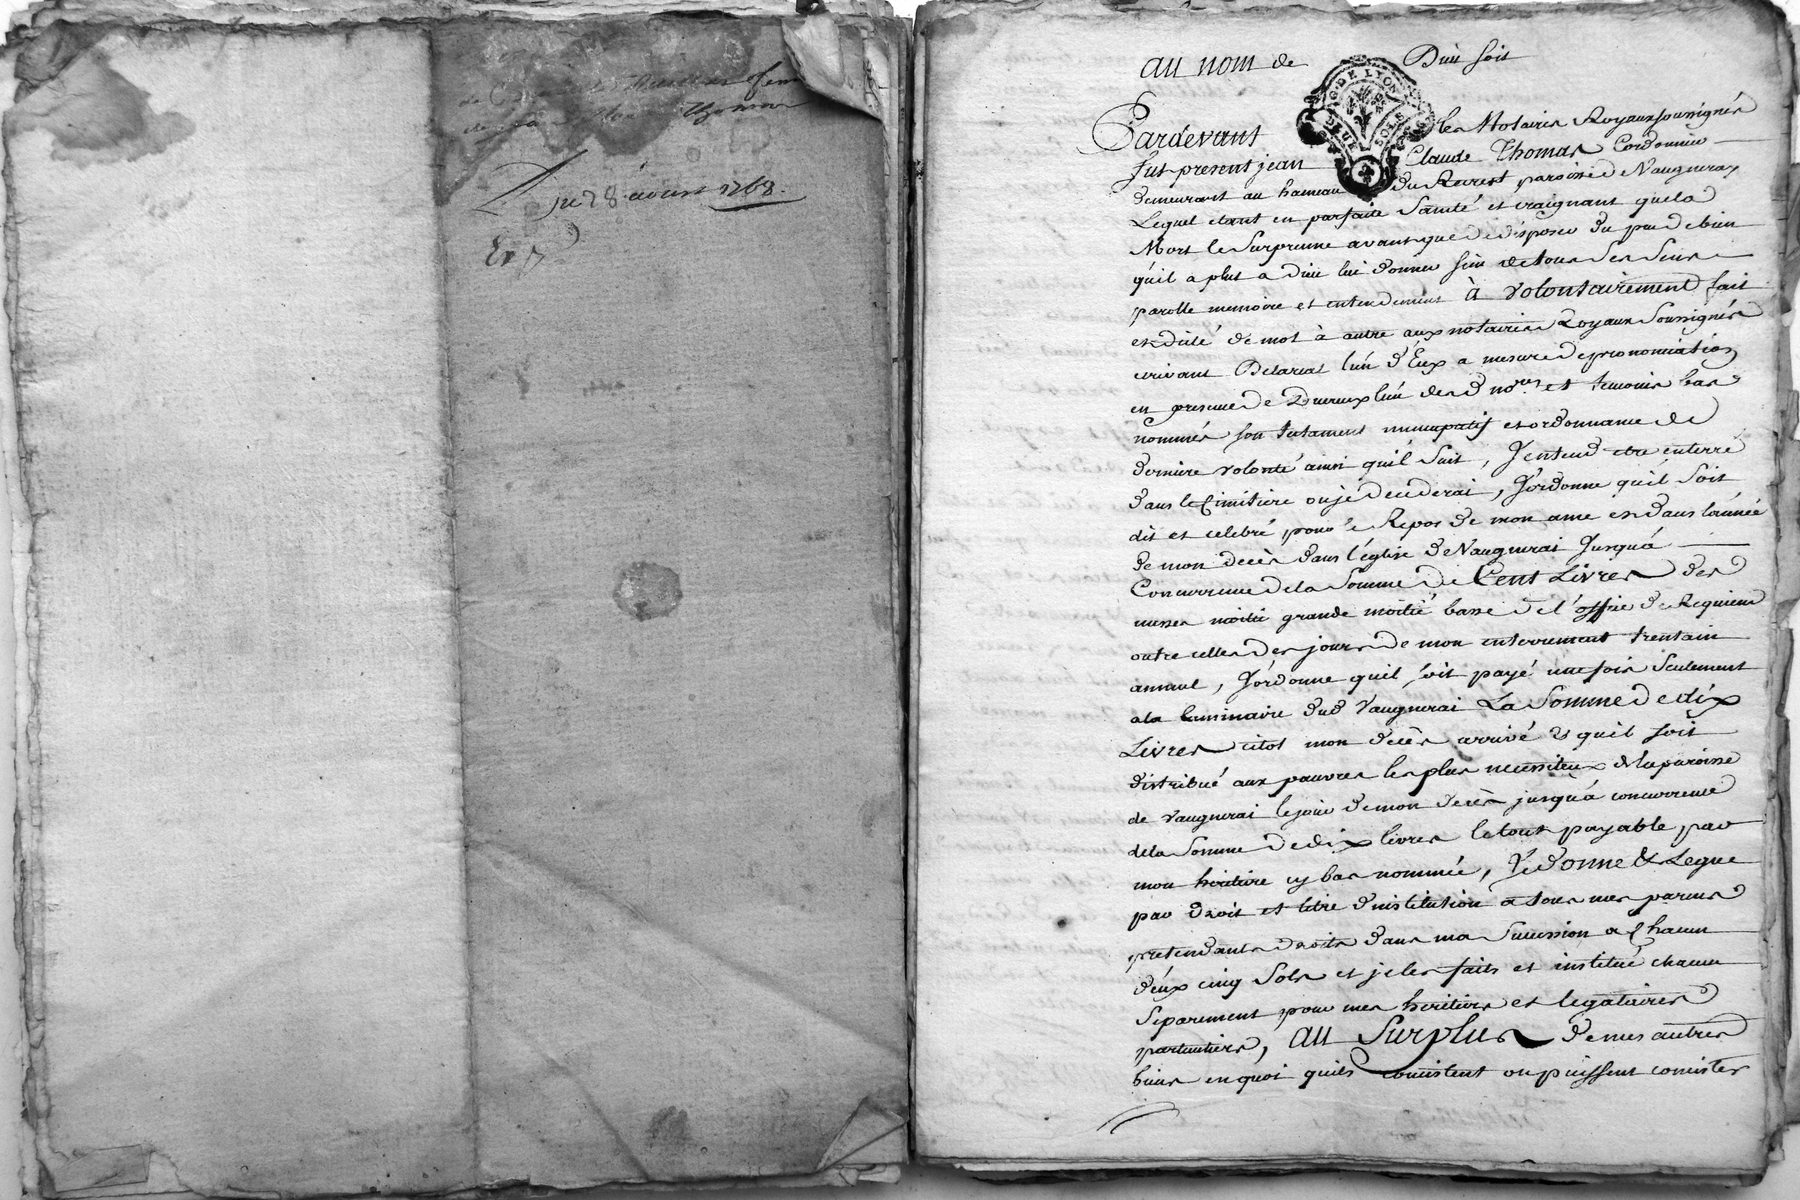 femme
Thomas
Du 28 aoust 1768.
Exp
au nom de Dieu soit
G. DE LYON
DEUX SOLS
Pardevant les Notaires Royaux soussignés
fut present jean Claude Thomas Cordonnier
demeurant au hameau du Recret paroisse de Vaugneray
Lequel etant en parfaite Santé et craignant que la
Mort le Surprenne avant que de disposer du peu de bien
qu'il a plut a Dieu lui donner sein de tous ses sens
parolle memoire et entendement à volontairement fait
et dicté de mot à autre aux notaires Royaux Soussignés
ecrivant l'un d'Eux a mesure de prononciation
en presence de l'un desd nores et temoins bas
nommés son testament nuncupatif et ordonnance de
derniere volonté ainsi qu'il Suit, J'entend etre enterré
dans le Cimitiere ou je decederai, J'ordonne qu'il Soit
dit et celebré pour le Repos de mon ame et dans l'année
de mon decès dans l'église de Vaugnerai Jusqu'à
Concurrence de la Somme de Cent Livres des
messes moitié grande moitié basse de l'office de Requiem
outre celles des jours de mon enterrement trentain
annuel, J'ordonne qu'il soit payé une fois Seulement
a la Luminaire dud Vaugnerai La Somme de dix
Livres sitot mon decès arrivé & qu'il soit
distribué aux pauvres les plus necessiteux de la paroisse
de Vaugnerai le jour de mon decès jusqu'à concurrence
de la Somme de dix livres le tout payable par
mon heritiere cy bas nommée, Je donne & Legue
par droit et titre d'institution a tous mes parens
pretendants droits dans ma Succession a Chacun
d'eux cinq Sols et je les faits et institué chacun
Separement pour mes heritiers et legataires
particuliers, au Surplus de mes autres
biens en quoi quils consistent ou puissent consister